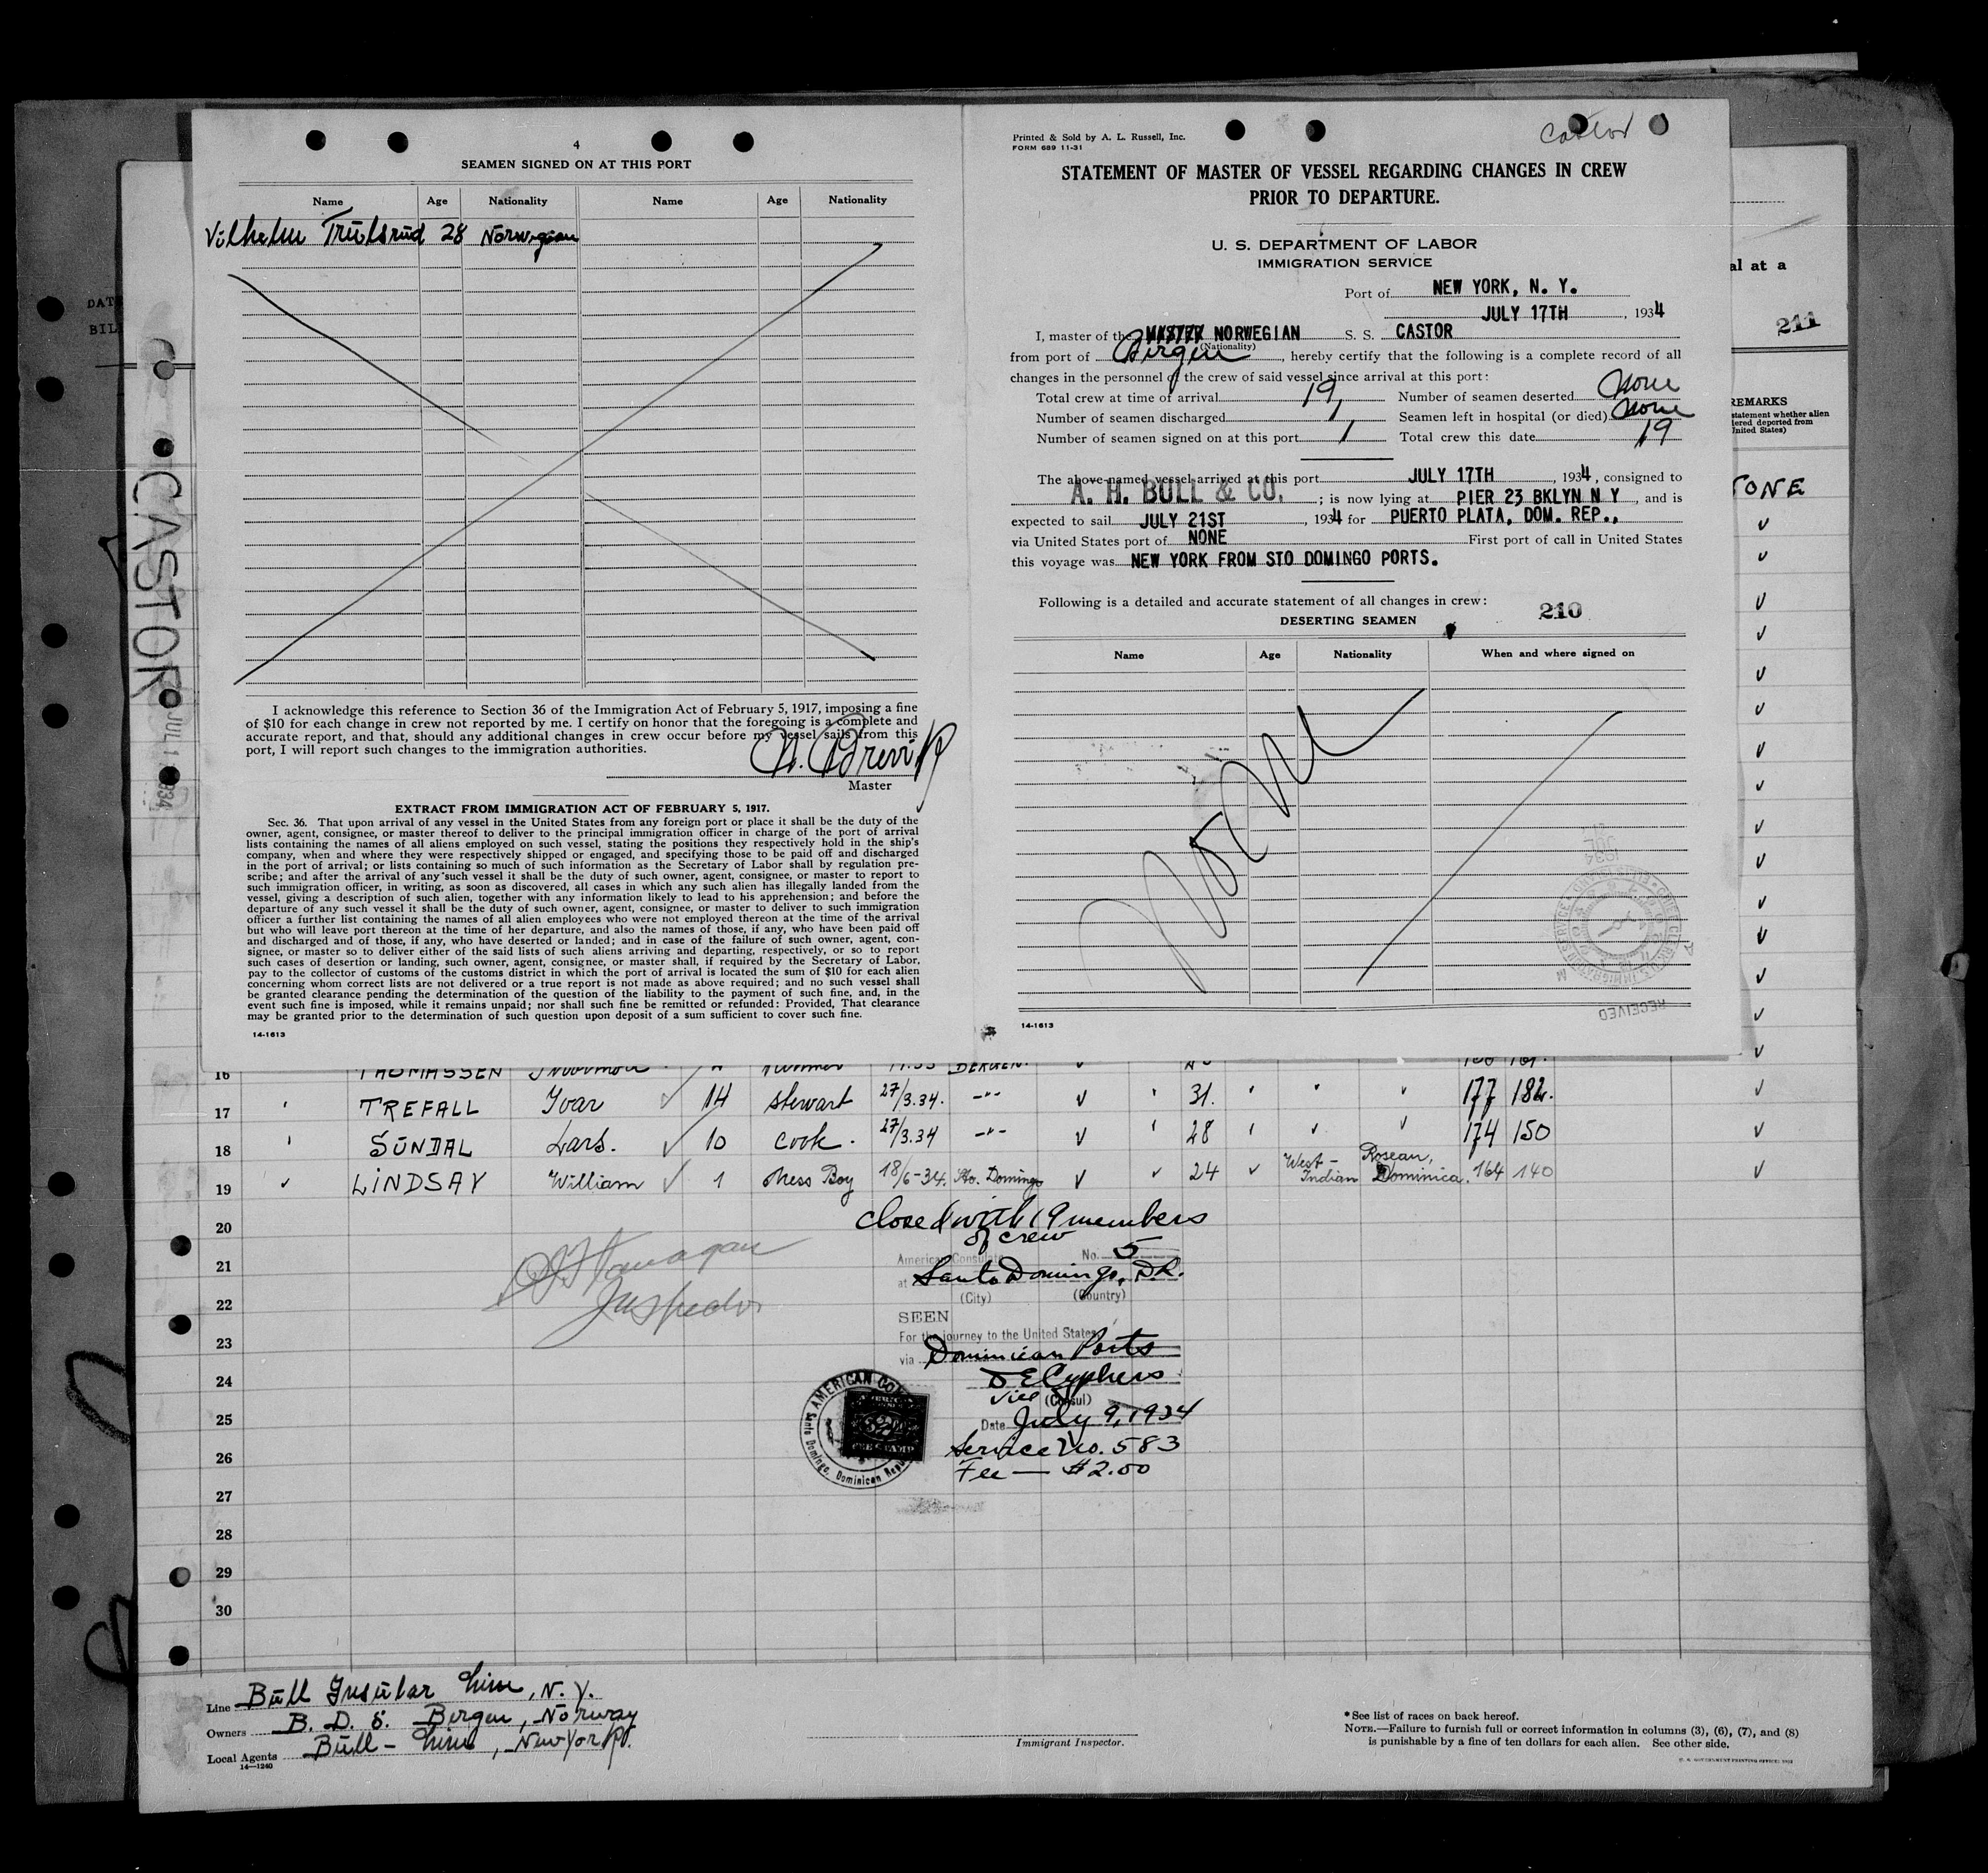 4
SEAMEN SIGNED ON AT THIS PORT
Name Age Nationality Name Age Nationality
Vilhelm Trulsrud 28 Norwegian
I acknowledge this reference to Section 36 of the Immigration Act of February 5, 1917, imposing a fine
of $10 for each change in crew not reported by me. I certify on honor that the foregoing is a complete and
accurate report, and that, should any additional changes in crew occur before my vessel sails from this
port, I will report such changes to the immigration authorities.
Master
EXTRACT FROM IMMIGRATION ACT OF FEBRUARY 5, 1917.
Sec. 36. That upon arrival of any vessel in the United States from any foreign port or place it shall be the duty of the
owner, agent, consignee, or master thereof to deliver to the principal immigration officer in charge of the port of arrival
lists containing the names of all aliens employed on such vessel, stating the positions they respectively hold in the ship's
company, when and where they were respectively shipped or engaged, and specifying those to be paid off and discharged
in the port of arrival; or lists containing so much of such information as the Secretary of Labor shall by regulation pre-
scribe; and after the arrival of any such vessel it shall be the duty of such owner, agent, consignee, or master to report to
such immigration officer, in writing, as soon as discovered, all cases in which any such alien has illegally landed from the
vessel, giving a description of such alien, together with any information likely to lead to his apprehension; and before the
departure of any such vessel it shall be the duty of such owner, agent, consignee, or master to deliver to such immigration
officer a further list containing the names of all alien employees who were not employed thereon at the time of the arrival
but who will leave port thereon at the time of her departure, and also the names of those, if any, who have been paid off
and discharged and of those, if any, who have deserted or landed; and in case of the failure of such owner, agent, con-
signee, or master so to deliver either of the said lists of such aliens arriving and departing, respectively, or so to report
such cases of desertion or landing, such owner, agent, consignee, or master shall, if required by the Secretary of Labor,
pay to the collector of customs of the customs district in which the port of arrival is located the sum of $10 for each alien
concerning whom correct lists are not delivered or a true report is not made as above required; and no such vessel shall
be granted clearance pending the determination of the question of the liability to the payment of such fine, and, in the
event such fine is imposed, while it remains unpaid; nor shall such fine be remitted or refunded: Provided, That clearance
may be granted prior to the determination of such question upon deposit of a sum sufficient to cover such fine.
14-1613
Printed & Sold by A. L. Russell, Inc.
FORM 689 11-31
Castor
STATEMENT OF MASTER OF VESSEL REGARDING CHANGES IN CREW
PRIOR TO DEPARTURE.
U. S. DEPARTMENT OF LABOR
IMMIGRATION SERVICE
Port of NEW YORK, N. Y.
JULY 17TH, 1934
I, master of the NORWEGIAN S. S. CASTOR
(Nationality)
from port of Bergen, hereby certify that the following is a complete record of all
changes in the personnel of the crew of said vessel since arrival at this port:
Total crew at time of arrival 19, Number of seamen deserted None
Number of seamen discharged 1, Seamen left in hospital (or died) None
Number of seamen signed on at this port 1 Total crew this date 19
The above-named vessel arrived at this port JULY 17TH, 1934, consigned to
A. H. BULL & CO. ; is now lying at PIER 23 BKLYN N Y, and is
expected to sail JULY 21ST, 1934 for PUERTO PLATA, DOM. REP.,
via United States port of NONE First port of call in United States
this voyage was NEW YORK FROM STO DOMINGO PORTS.
Following is a detailed and accurate statement of all changes in crew: 210
DESERTING SEAMEN
Name Age Nationality When and where signed on
None
RECEIVED
14-1613
DAT
BIL
CASTOR
JUL 1 1934
al at a
211
REMARKS
statement whether alien
dered deported from
United States)
16 THOMASSEN BERGEN
17 TREFALL Ivar 14 Stewart 27/3.34. -"- 31. 177 182.
18 SUNDAL Lars. 10 Cook. 27/3.34 -"- 28 174 150
19 LINDSAY William 1 Mess Boy 18/6-34. Sto. Domingo 24 West-Indian Roseau, Dominica. 164 140
20
21
22
23
24
25
26
27
28
29
30
Closed with 19 members
of crew
American Consulate No. 5
at Santo Domingo, D.R.
(City) (Country)
SEEN
For the journey to the United States
via Dominican Ports
Vice (Consul)
Date July 9, 1934
Service No. 583
Fee — $2.00
Inspector
AMERICAN CON
Santo Domingo, Dominican Repu
Line Bull Insular Line, N. Y.
Owners B. D. S. Bergen, Norway
Local Agents Bull-Line, New York.
14—1240
Immigrant Inspector.
* See list of races on back hereof.
NOTE.—Failure to furnish full or correct information in columns (3), (6), (7), and (8)
is punishable by a fine of ten dollars for each alien. See other side.